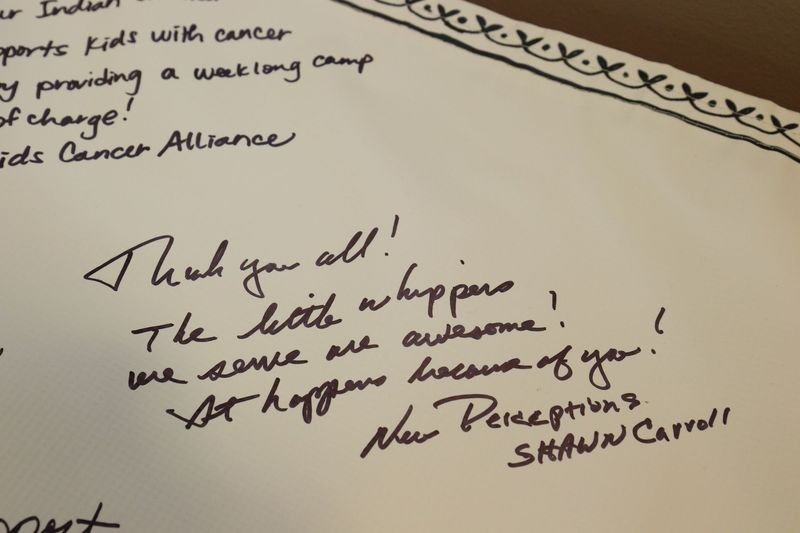 ur Indian
pports kids with cancer
y providing a weeklong camp
of charge!
ids Cancer Alliance
Thank you all!
The little whippers
we serve are awesome!
It happens because of you!
New Perceptions
SHAWN Carroll
port